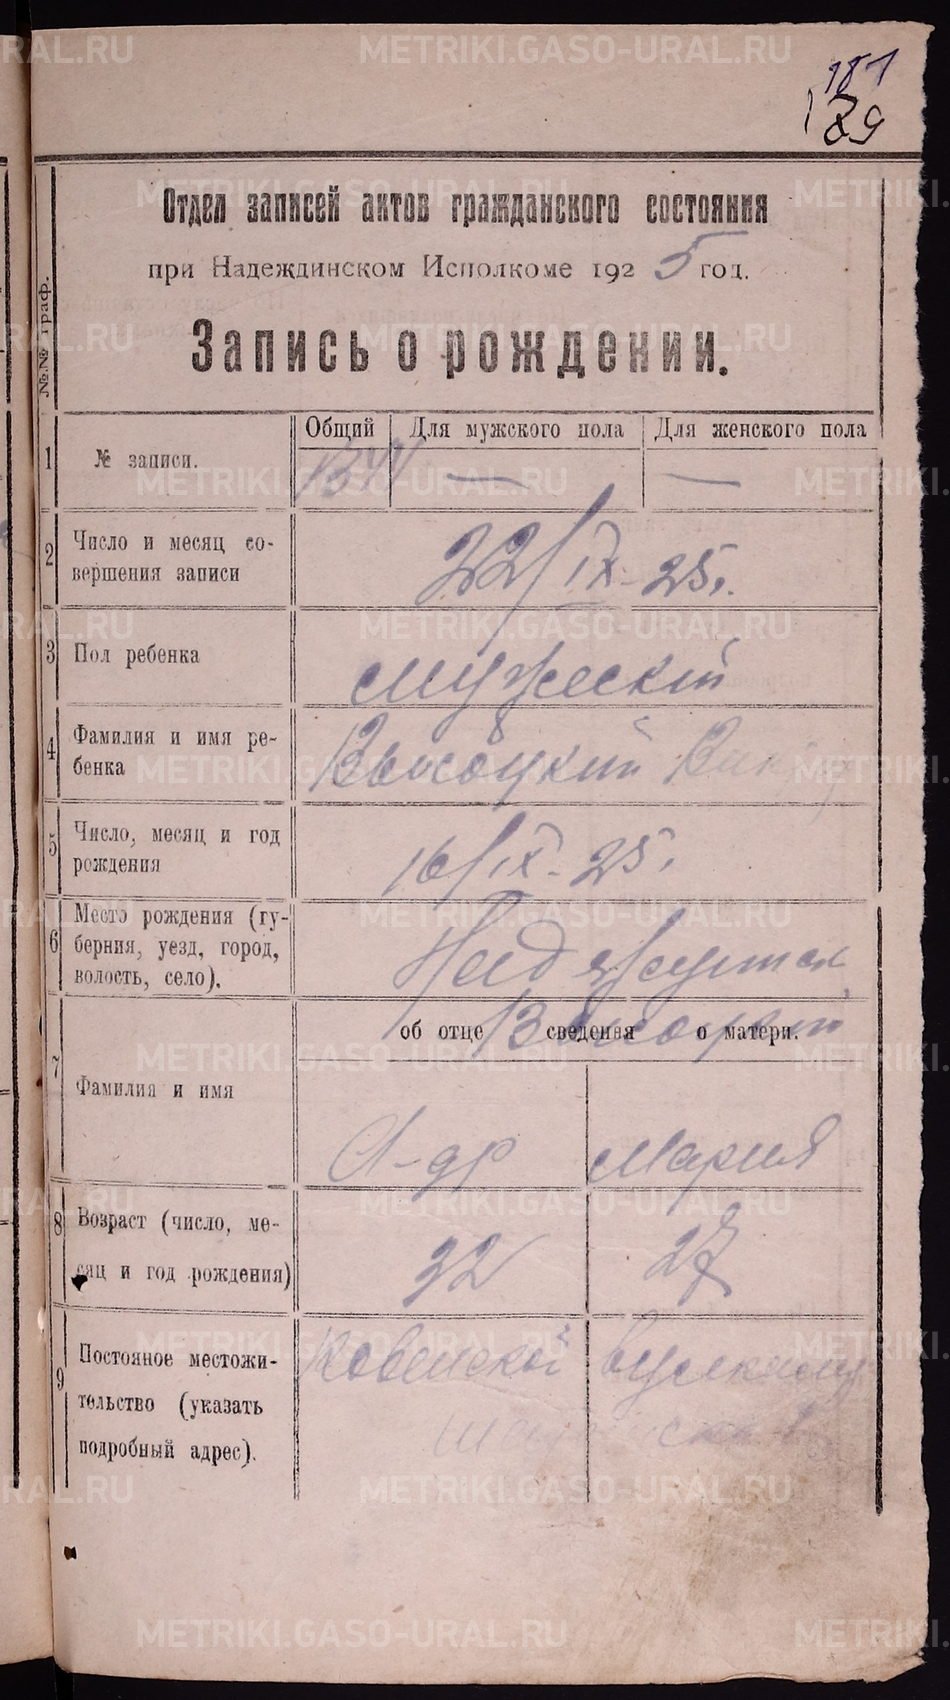 181
189
Отдел записей актов гражданского состояния
при Надеждинском Исполкоме 1925 год.
Запись о рождении.
№№ граф.
Общий Для мужского пола Для женского пола
1 № записи. — —
2 Число и месяц со-
вершения записи
22/IX-25г.
3 Пол ребенка мужеский
4 Фамилия и имя ре-
бенка
Высоцкий
5 Число, месяц и год
рождения
16/IX-25г.
6 Место рождения (гу-
берния, уезд, город,
волость, село).
Высоцкий
об отце сведения о матери.
7 Фамилия и имя
А-др Мария
8 Возраст (число, ме-
сяц и год рождения)
32 27
9 Постояное местожи-
тельство (указать
подробный адрес).
Ковенской
METRIKI.GASO-URAL.RU